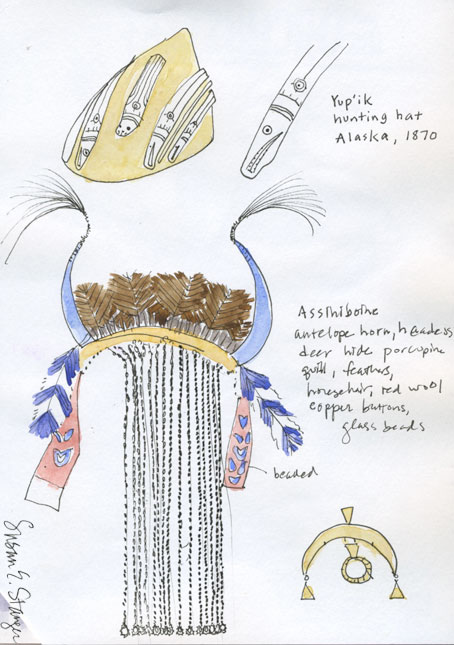 Yup'ik
hunting hat
Alaska, 1870
Assiniboine
antelope horn,
deer hide porcupine
quill, feathers,
horsehair, red wool
copper buttons,
glass beads
beaded
Susan E.